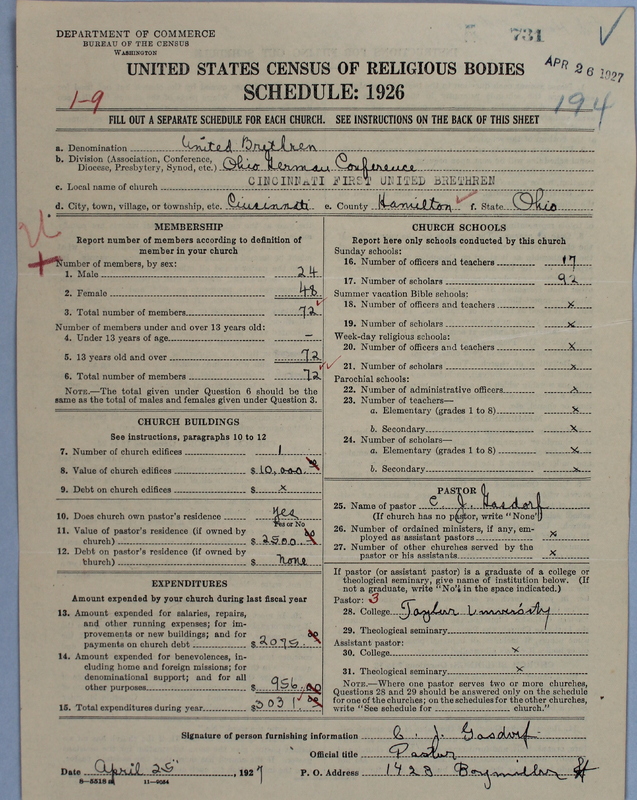 DEPARTMENT OF COMMERCE
BUREAU OF THE CENSUS
WASHINGTON
731
UNITED STATES CENSUS OF RELIGIOUS BODIES
APR 26 1927
SCHEDULE: 1926
1-9
194
FILL OUT A SEPARATE SCHEDULE FOR EACH CHURCH. SEE INSTRUCTIONS ON THE BACK OF THIS SHEET
a. Denomination United Brethren
b. Division (Association, Conference, Diocese, Presbytery, Synod, etc.) Ohio German Conference
c. Local name of church CINCINNATI FIRST UNITED BRETHREN
d. City, town, village, or township, etc. Cincinnati e. County Hamilton f. State Ohio
MEMBERSHIP
Report number of members according to definition of
member in your church
Number of members, by sex:
1. Male 24
2. Female 48
3. Total number of members 72
Number of members under and over 13 years old:
4. Under 13 years of age –
5. 13 years old and over 72
6. Total number of members 72
NOTE.—The total given under Question 6 should be
same as the total of males and females given under Question 3.
CHURCH BUILDINGS
See instructions, paragraphs 10 to 12
7. Number of church edifices 1
8. Value of church edifices $10,000.00
9. Debt on church edifices $ x
10. Does church own pastor's residence yes
Yes or No
11. Value of pastor's residence (if owned by
church) $2500.00
12. Debt on pastor's residence (if owned by
church) $ none
EXPENDITURES
Amount expended by your church during last fiscal year
13. Amount expended for salaries, repairs,
and other running expenses; for im-
provements or new buildings; and for
payments on church debt $2075.00
14. Amount expended for benevolences, in-
cluding home and foreign missions; for
denominational support; and for all
other purposes $956.00
15. Total expenditures during year $3031
CHURCH SCHOOLS
Report here only schools conducted by this church
Sunday schools:
16. Number of officers and teachers 17
17. Number of scholars 92
Summer vacation Bible schools:
18. Number of officers and teachers x
19. Number of scholars x
Week-day religious schools:
20. Number of officers and teachers x
21. Number of scholars x
Parochial schools:
22. Number of administrative officers x
23. Number of teachers—
a. Elementary (grades 1 to 8) x
b. Secondary x
24. Number of scholars—
a. Elementary (grades 1 to 8) x
b. Secondary x
PASTOR
25. Name of pastor C. J. Gasdorf
(If church has no pastor, write "None")
26. Number of ordained ministers, if any, em-
ployed as assistant pastors x
27. Number of other churches served by the
pastor or his assistants x
If pastor (or assistant pastor) is a graduate of a college or
theological seminary, give name of institution below. (If
not a graduate, write "No" in the space indicated.)
Pastor: 3
28. College Taylor University
29. Theological seminary
Assistant pastor:
30. College x
31. Theological seminary x
NOTE.—Where one pastor serves two or more churches,
Questions 28 and 29 should be answered only on the schedule
for one of the churches; on the schedules for the other churches,
write "See schedule for church."
Signature of person furnishing information C. J. Gasdorf
Official title Pastor
Date April 25, 1927 P. O. Address 1423 Baymiller St
8—5518 11—9054